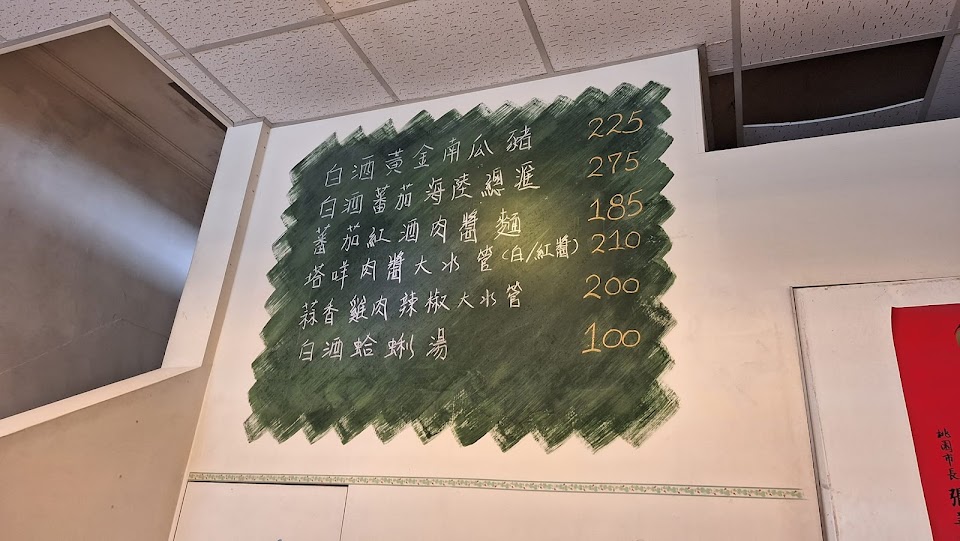 白酒黃金南瓜豬 225
白酒蕃茄海陸總滙 275
蕃茄紅酒肉醬麵 185
塔咩肉醬大水管(白/紅醬) 210
蒜香雞肉辣椒大水管 200
白酒蛤蜊湯 100
桃園市長